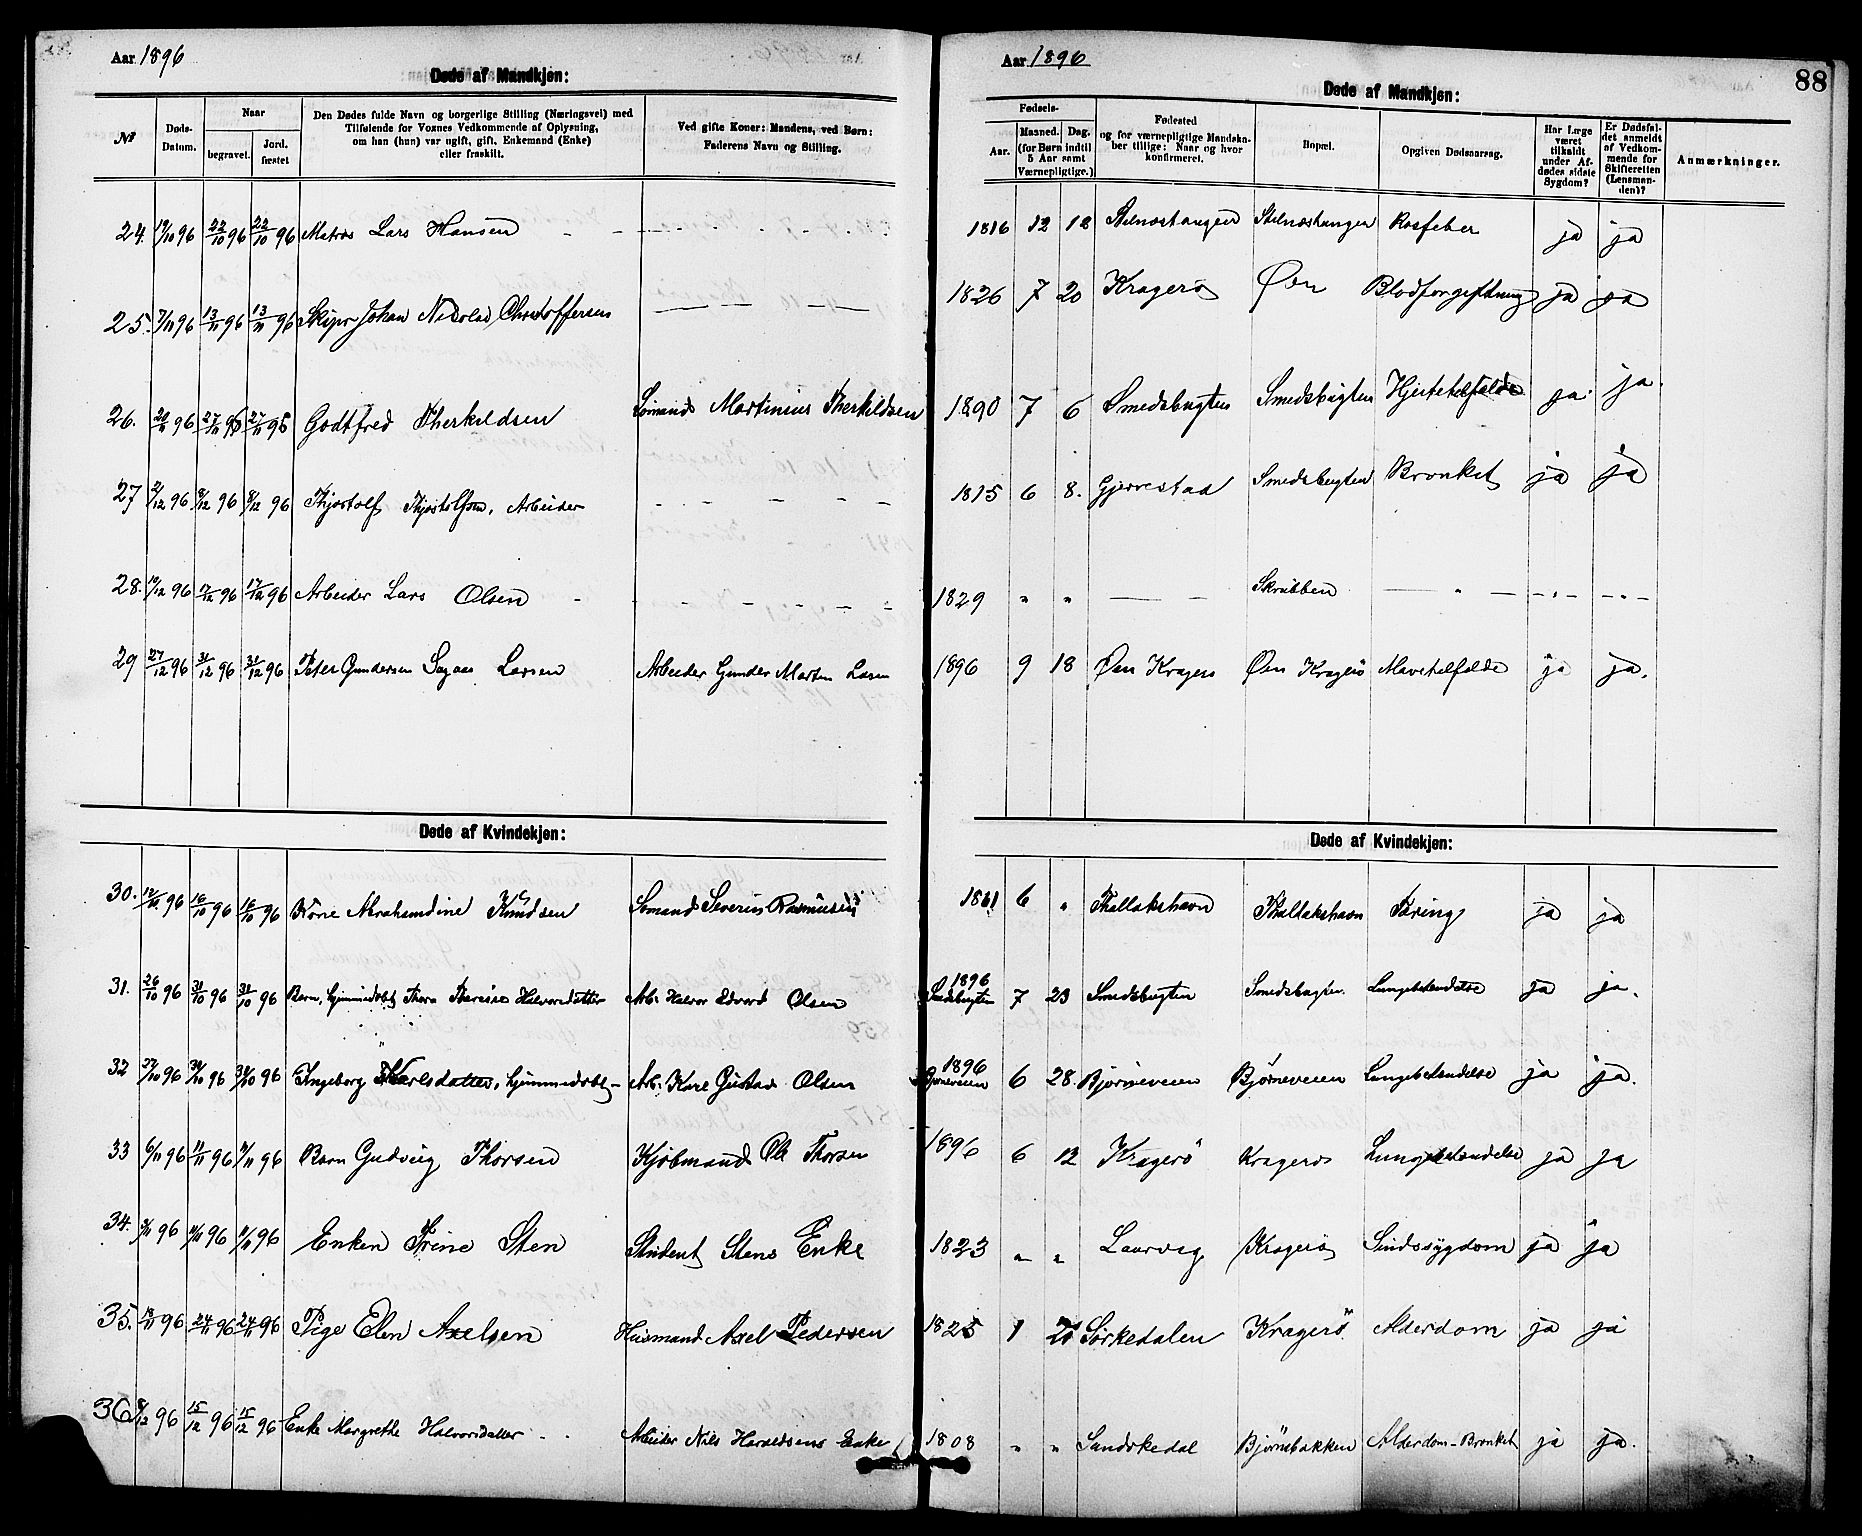 Aar 1896
Døde af Mandkjøn:
№
Døds-Datum.
Naar
begravet.
Jord. fæstet
Den Dødes fulde Navn og borgerlige Stilling (Næringsvei) med
Tilføiende for Voxnes Vedkommende af Oplysning,
om han (hun) var ugift, gift, Enkemand (Enke)
eller fraskilt.
Ved gifte Koner: Mandens, ved Børn:
Faderens Navn og Stilling.
Aar 1896
Døde af Mandkjøn:
88
Fødsels-
Aar.
Maaned. Dag.
(for Børn indtil
5 Aar samt
Værnepligtige.)
Fødested
og for værnepligtige Mandska-
ber tillige: Naar og hvor
konfirmeret.
Bopæl.
Opgiven Dødsaarsag.
Har Læge
været
tilkaldt
under Af-
dødes sidste
Sygdom?
Er Dødsfal-
det anmeldt
af Vedkom-
mende for
Skifteretten
(Lensman-
den)?
Anmærkninger.
24. 19/10 96 22/10 96 22/10 96 Matros Lars Hansen 1816 12 12 Stelnæstangen Stelnæstangen Rosfeber ja ja
25. 7/11 96 13/11 96 13/11 96 Skipr Johan Nicolai Christoffersen 1826 7 20 Kragerø Øen Blodforgiftning ja ja
26. 20/11 96 27/11 96 27/11 96 Godtfred Therkildsen Sömands Martinius Therkildsen 1890 7 6 Smedsbugten Smedsbugten Hjertetilfælde ja ja
27 2/12 96 8/12 96 8/12 96 Thjostolf Thjostolfsen, Arbeider 1815 6 8. Gjerrestad Smedsbugten Bronket ja ja
28. 10/12 96 17/12 96 17/12 96 Arbeider Lars Olsen 1829 " " Skrubben
29 27/12 96 31/12 96 31/12 96 Peter Gundersen Sagaas Larsen Arbeider Gunder Martin Larsen 1896 9 18 Øen Kragerø Øen Kragerö Mavetilfælde ja ja.
Døde af Kvindekjøn:
Døde af Kvindekjøn:
30. 12/10 96 16/10 96 16/10 96 Karie Abrahamdine Knudsen Sömands Severin Rasmusens 1861 6 " Thallakshavn Thallakshavn Tæring ja ja
31. 26/10 96 31/10 96 31/10 96 Barn, hjemmedøbt Thora Therese Halvorsdatter Arb. Halvor Edvard Olsen 1896 Smedsbugten 7 23 Smedsbugten Smedsbugten Lungebetændelse ja ja.
32 27/10 96 30/10 96 30/10 96 Ingeborg Karlsdatter, hjemmedøbt Arb. Karl Gustav Olsen 1896 Bjørneveien 6 28. Bjørneveien Bjørneveien Lungebetændelse ja ja.
33 6/11 96 11/11 96 11/11 96 Barn Gudvig Thorsen Kjöbmand Ole Thorsen 1896 6 12 Kragerö Kragerø Lungebetændelse ja ja
34. 9/11 96 11/11 96 11/11 96 Enken Trine Sten Student Stens Enke 1823 " " Laurvig Kragerø Sindssygdom ja ja
35. 18/11 96 24/11 96 24/11 96 Pige Elen Axelsen Husmand Axel Pedersen 1825 1 Sörkedalen Kragerö Alderdom ja ja
36. 8/12 96 15/12 96 15/12 96 Enke Margrethe Halvorsdatter Arbeider Nils Haraldsens Enke 1808 " " Sandskedal Bjørnsbakken Alderdom - Bronket ja ja.